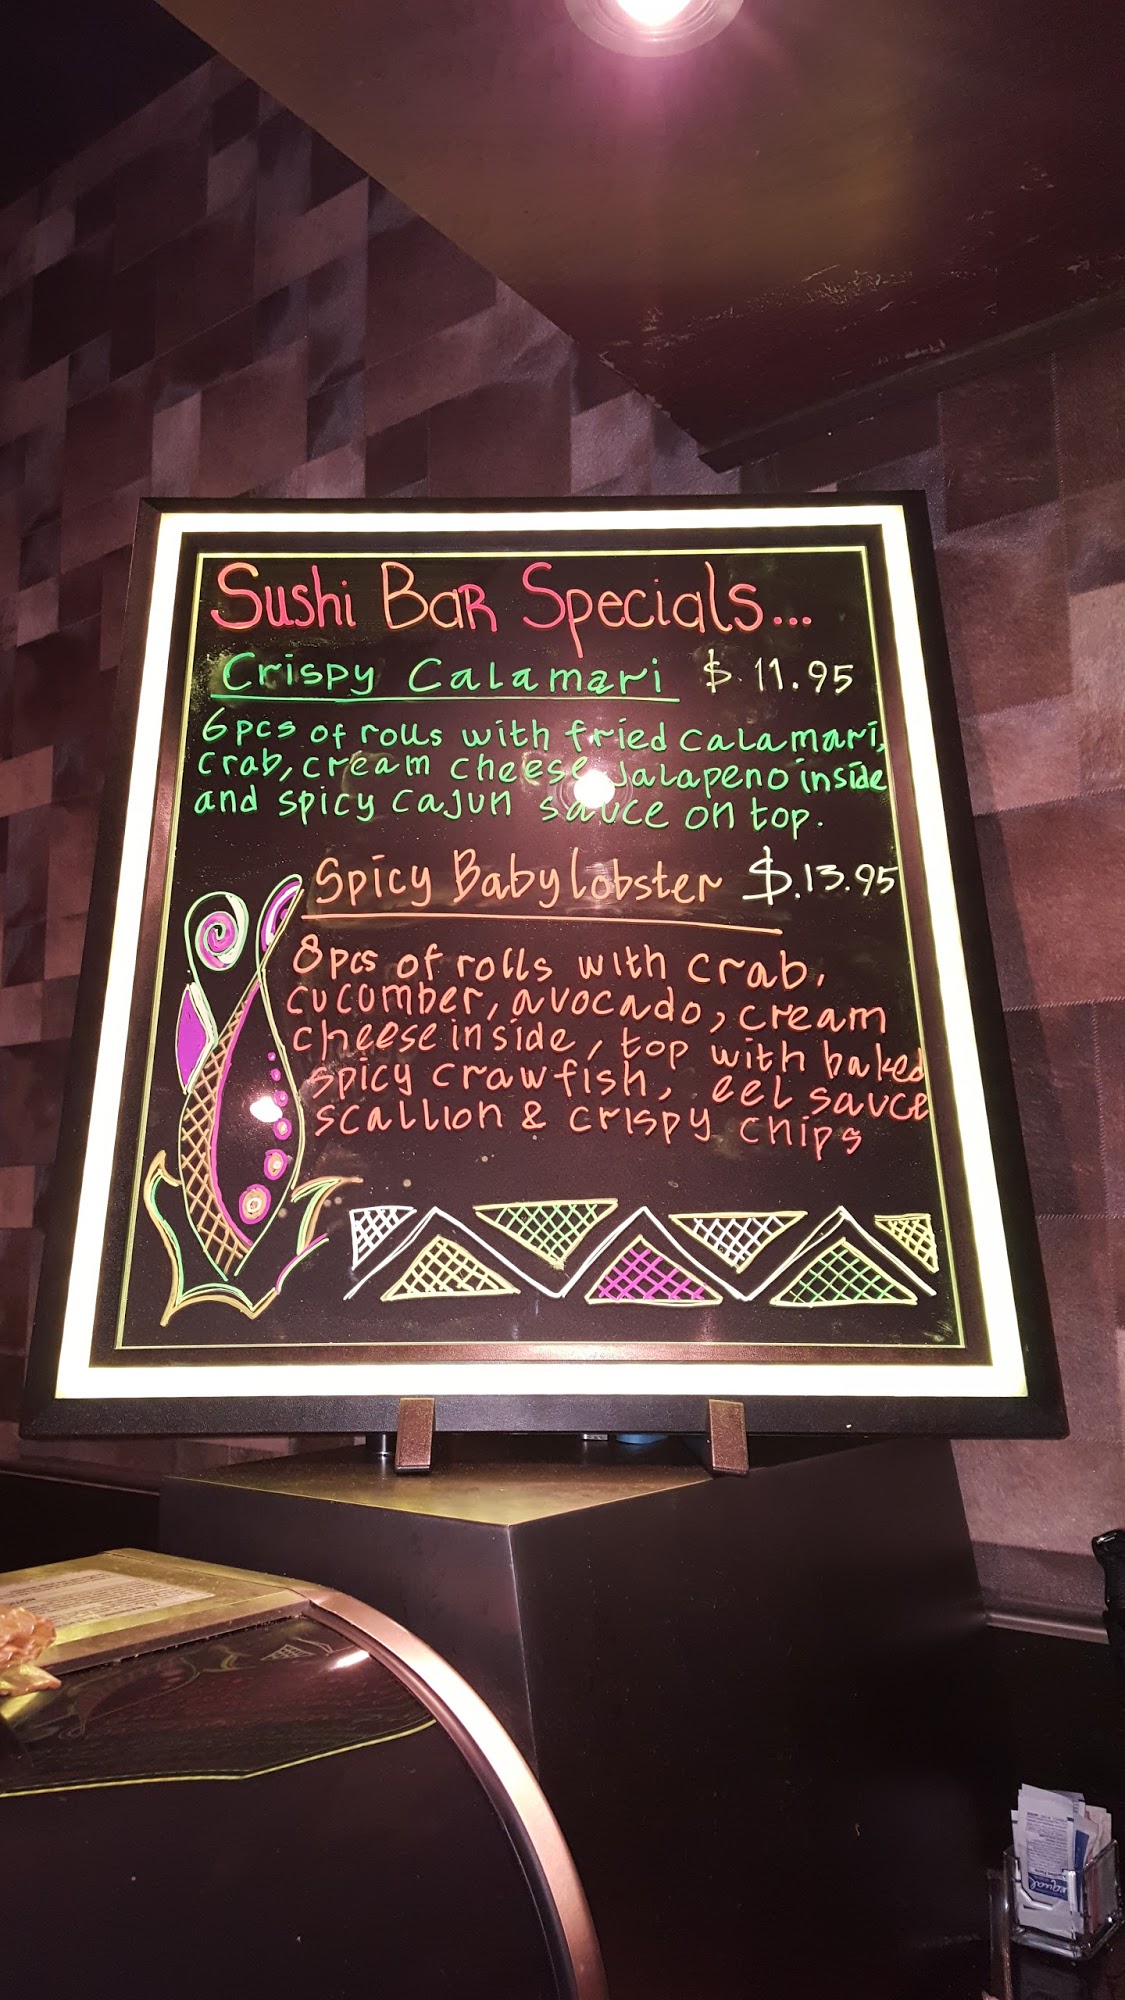 Sushi Bar Specials...
Crispy Calamari $ 11.95
6pcs of rolls with fried calamari,
crab, cream cheese, Jalapeno inside
and spicy cajun sauce on top.
Spicy Baby lobster $.13.95
8pcs of rolls with crab,
cucumber, avocado, cream
cheese inside, top with baked
spicy crawfish, eel sauce
scallion & crispy chips
equal